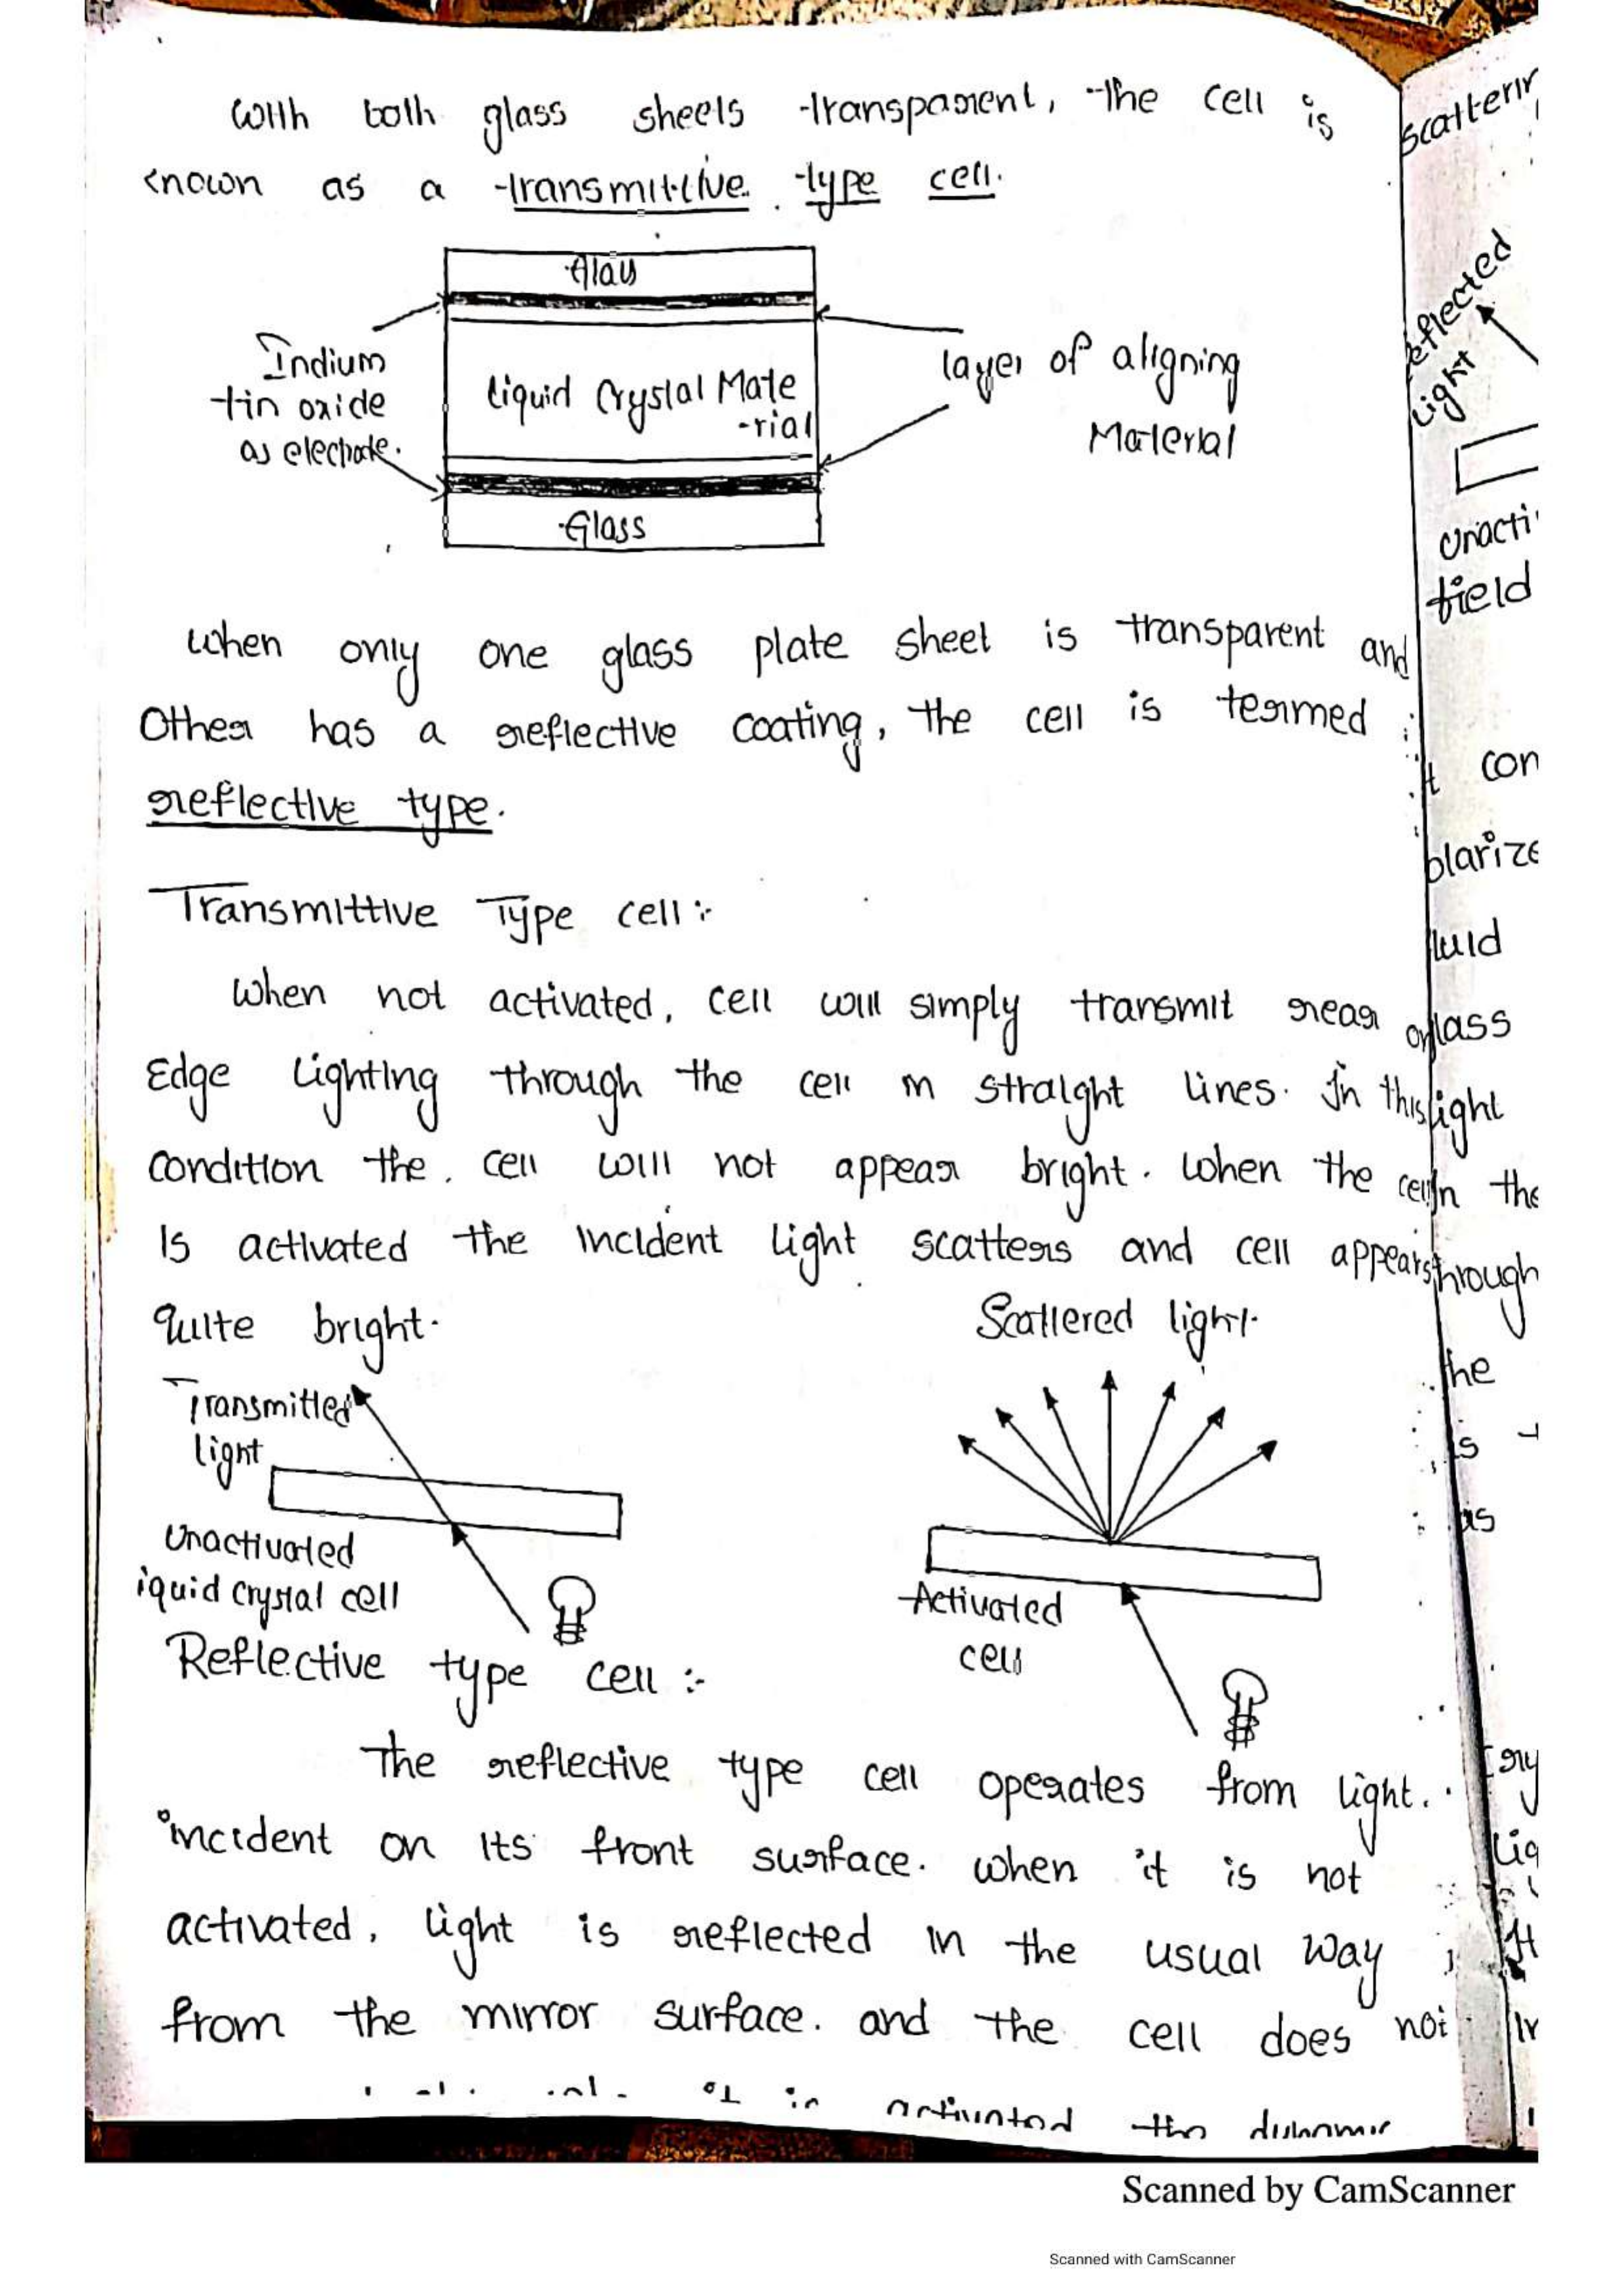 With both glass sheets transparent, the cell is
known as a transmittive type cell.
Glass
Indium
tin oxide
as electrode.
Liquid Crystal Mate
-rial
layer of aligning
Material
Glass
When only one glass plate sheet is transparent and
Other has a reflective coating, the cell is termed
reflective type.
Transmittive Type cell :-
When not activated, cell will simply transmit rear or
Edge lighting through the cell in straight lines. In this
condition the cell will not appear bright. When the cell
Is activated the incident light scatters and cell appears
quite bright.
Scattered light.
Transmitted
light
Unactivated
iquid crystal cell
Activated
cell
Reflective type cell :-
The reflective type cell operates from light.
incident on its front surface. when it is not
activated, light is reflected in the usual way
from the mirror surface. and the cell does not
activated the dynamic
reflected
light
field
con
luid
lass
light
in the
through
the
is
as
Scanned by CamScanner
Scanned with CamScanner